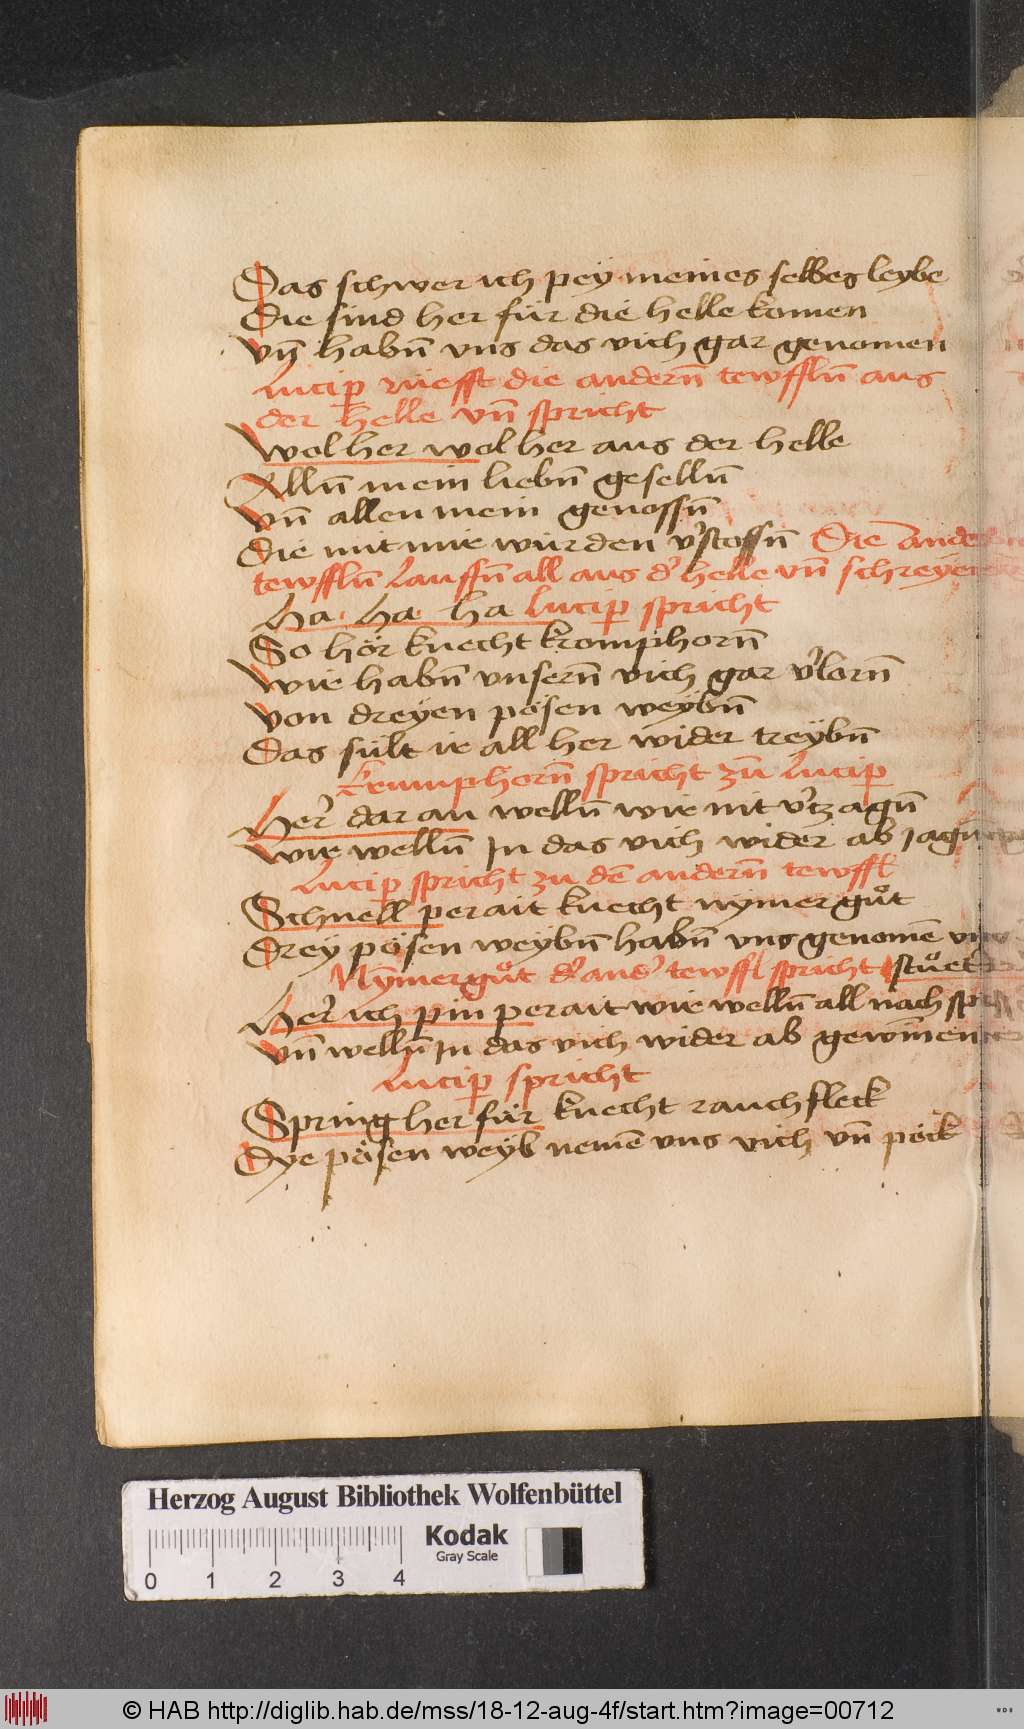 Das schwer ich pey meines selbes leybe
Die sind her für die helle komen
Vn̄ habn̄ vns das vich gar genomen
Lucip̱ rüefft die andern̄ tewffln̄ aus
der helle vn̄ spricht
Wol her wol her aus der helle
Alln̄ mein liebn̄ geselln̄
Vn̄ allen mein genossn̄
Die mit mir würden v̓stossn̄ Die Andern
tewffln̄ Lauffn̄ all aus d̓ helle vn̄ schreyen
Ha · Ha · ha Lucip̱ spricht
So hör knecht kromphorn̄
Wir habn̄ vnsern̄ vich gar v̓lorn̄
Von dreÿen pösen weÿbn̄
Das sült ir all her wider treÿbn̄
Krumphorn̄ spricht zū Lucip̱
Her̓ dar an welln̄ wir nit v̓tzagn̄
Wir welln̄ In das vich wider ab Jagn̄
Lucip̱ spricht zu dē andern̄ tewffl
Schnell perait knecht nymer gůt
Dreÿ pösen weÿbn̄ habn̄ vns genomē vns
Nȳmergůt d̓ and̓ tewffl spricht
Her̓ ich pin perait wir welln̄ all nach
Vn̄ welln̄ In das vich wider ab gewīnen
Lucip̱ spricht
Spring her für knecht rauchfleck
Dye pösen weÿb nemē vns vich vn̄ pöck
Herzog August Bibliothek Wolfenbüttel
Kodak
Gray Scale
0 1 2 3 4
© HAB http://diglib.hab.de/mss/18-12-aug-4f/start.htm?image=00712